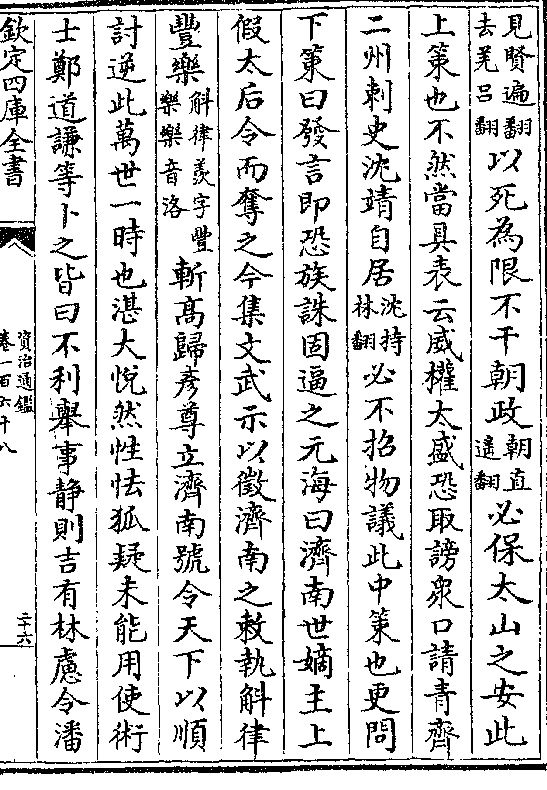 見賢遍翻
去羌呂翻
以死為限不干朝政朝直遥翻必保太山之安此
上策也不然當具表云威權太盛恐取謗衆口請青齊
二州刺史沈靖自居沈持林翻必不招物議此中策也更問
下策曰發言即恐族誅固逼之元海曰濟南世嫡主上
假太后令而奪之今集文武示以徵濟南之敕執斛律
豐樂斛律羨字豐樂樂音洛斬高歸彦尊立濟南號令天下以順
討逆此萬世一時也湛大悦然性怯狐疑未能用使術
士鄭道謙等卜之皆曰不利舉事静則吉有林慮令潘
欽定四庫全書
資治通鑑
卷一百六十八
二十六